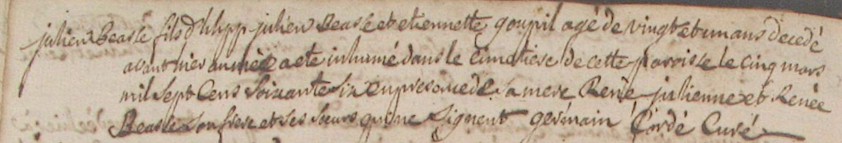 julien Beasle fils d'hypp julien Beasle et etiennette goupil agé de vingt et un ans decedé
avant hier a eté inhumé dans le cimetiere de cette parroisse le cinq mars
mil sept Cens soixante six en presence de sa mere Renée julienne et Renée
Beasle son frere et ses sœurs qui ne signent germain Cordé Curé